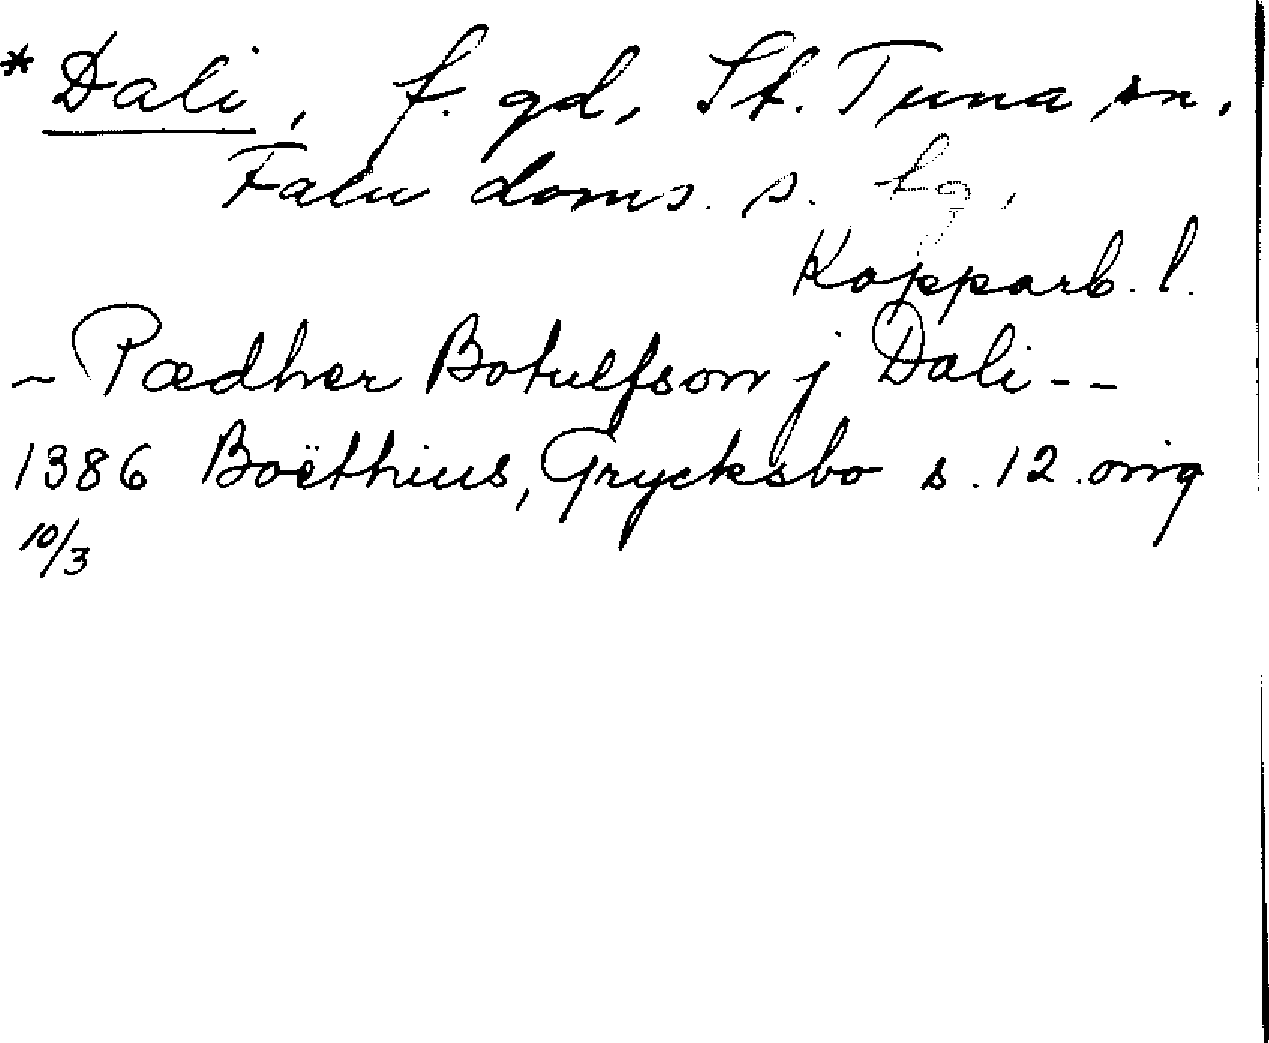 *Dali, f. gd, St. Tuna sn,
Falu doms. s. tg,
Kopparb. l.
~ Pædher Botulfson j Dali - -
1386 Boëthius, Grycksbo s. 12. orig
10/3